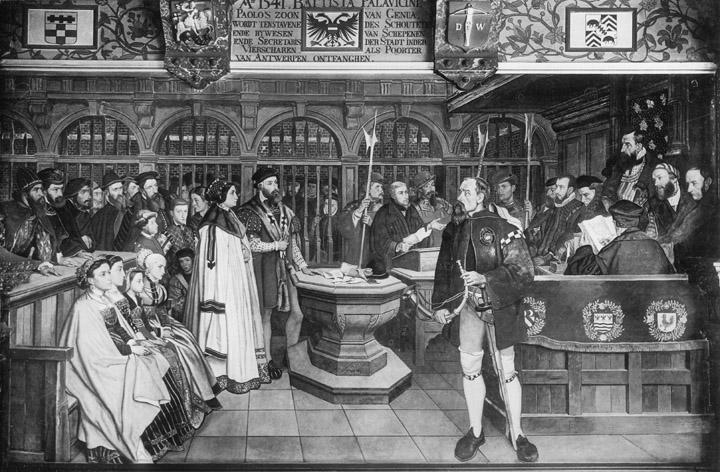 Aº 1541. BATTISTA PALAVICINI
PAOLOS ZOON VAN GENUA,
WORDT TENSTAVENE DES SCHOUTETEN
ENDE BYWESEN VAN SCHEPENEN
ENDE SECRETARIS DER STADT INDER
VIERSCHAREN ALS POORTER
VAN ANTWERPEN ONTFANGHEN.
D W